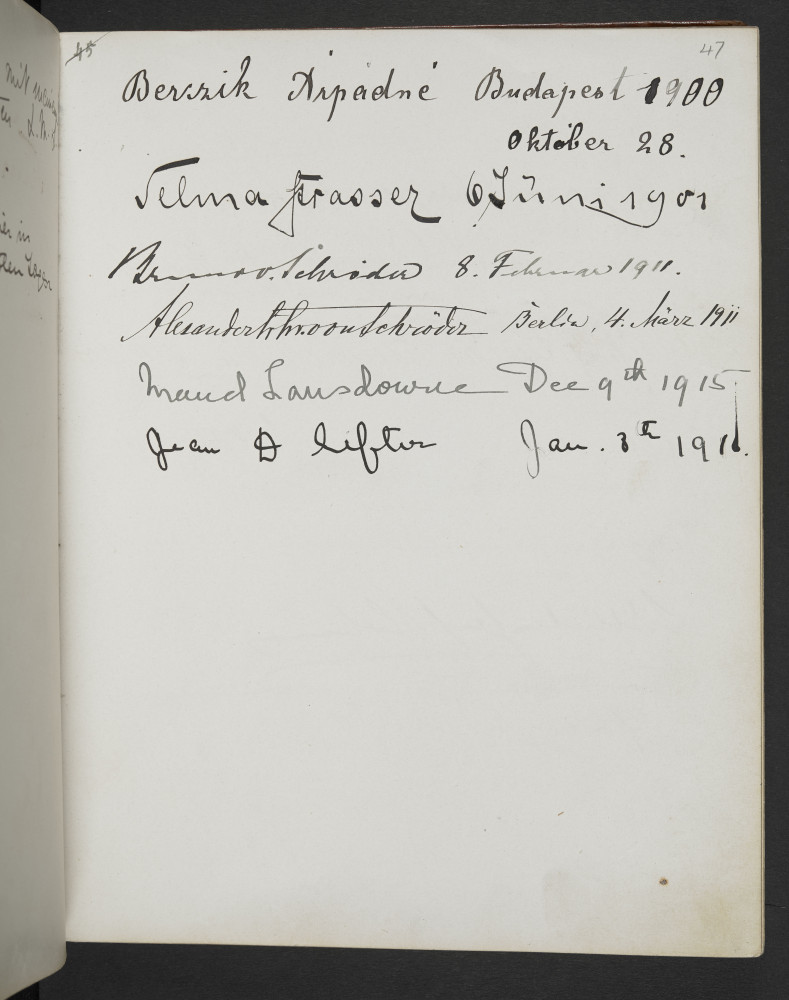 45
47
Berczik Árpádné Budapest 1900
Október 28.
Selma Strasser 6 Juni 1901
Bruno v. Schröder 8. Februar 1911.
Alexander Frhr. von Schröder Berlin, 4. März 1911
Maud Lansdowne Dec 9th 1915
Jean D Jan. 3th 191